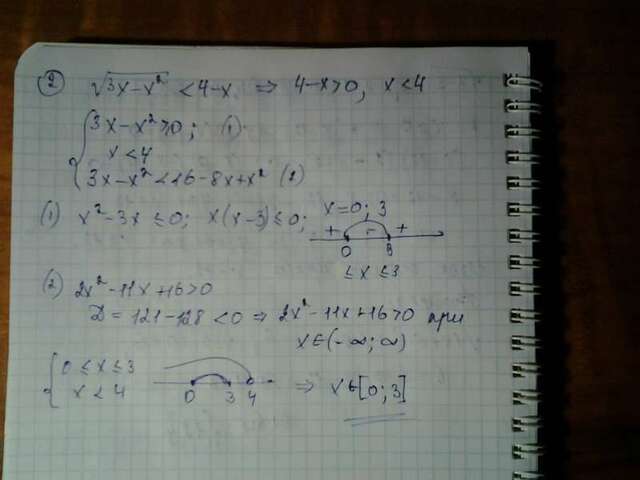 ② √3x-x² < 4-x ⇒ 4-x>0, x<4
3x-x²≥0; (1)
x<4
3x-x²<16-8x+x² (2)
(1) x²-3x≤0; x(x-3)≤0; x=0; 3
+ - +
0 3
≤x≤3
(2) 2x²-11x+16>0
D=121-128<0 ⇒ 2x²-11x+16>0 при
x∈(-∞;∞)
0≤x≤3
x<4
0 3 4 ⇒ x∈[0;3]